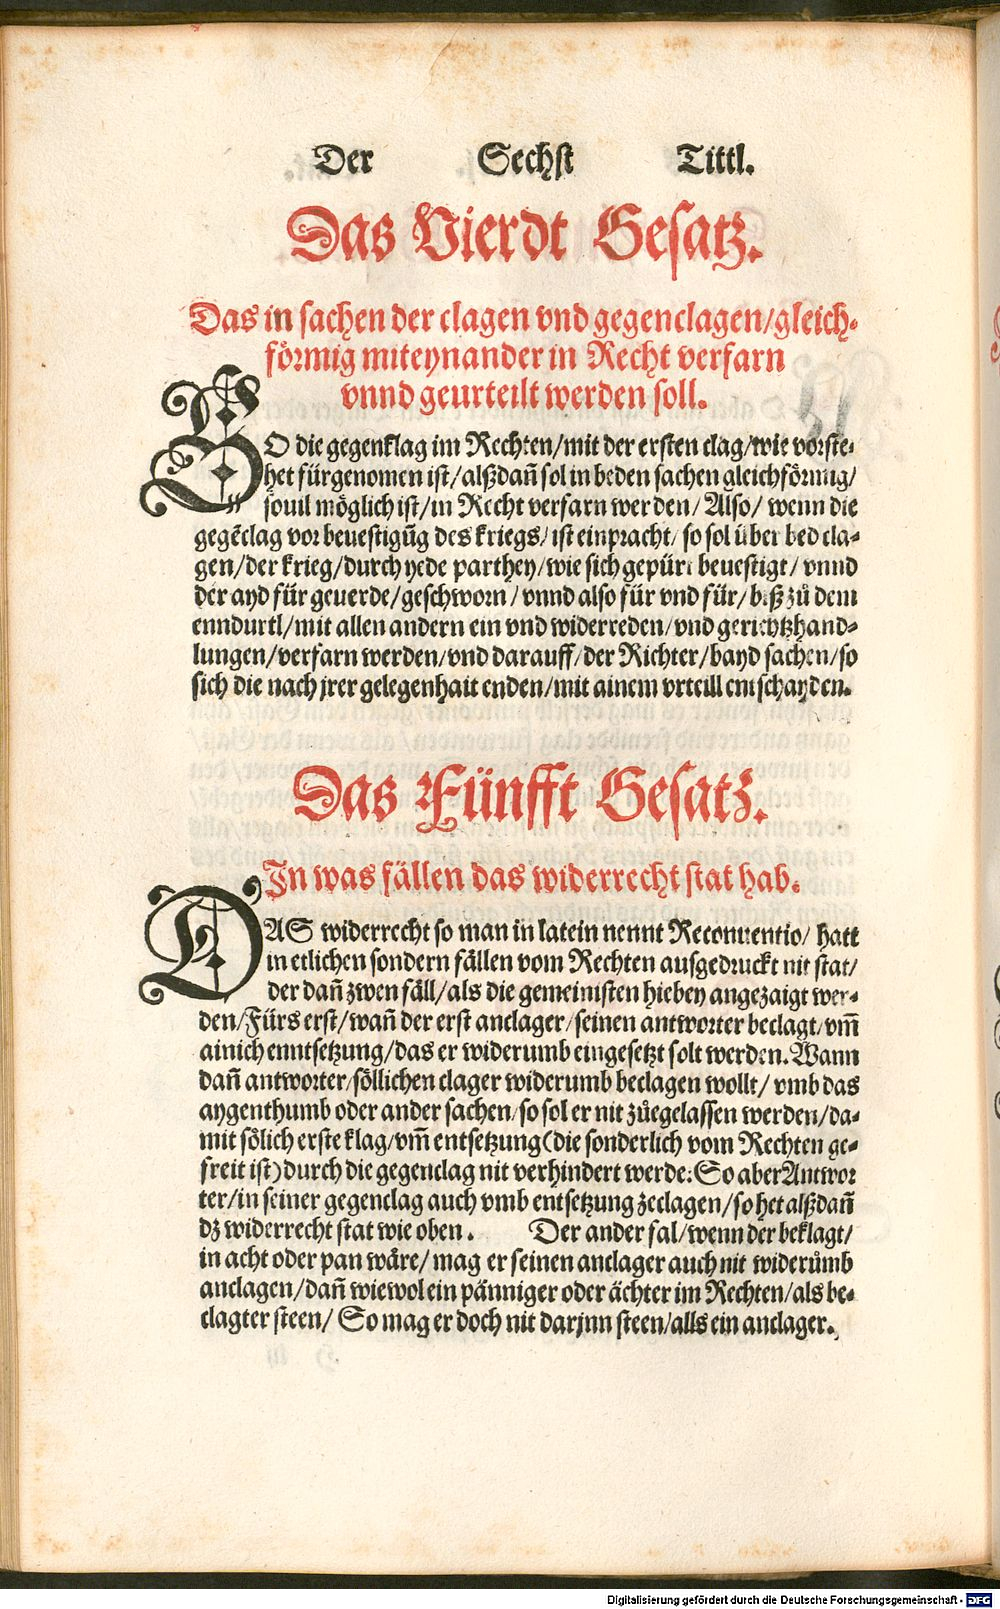 Der Sechst Tittl.
Das Vierdt Gesatz.
Das in sachen der clagen vnd gegenclagen/gleich-
förmig miteynander in Recht verfarn
vnnd geurteilt werden soll.
WO die gegenklag im Rechten/mit der ersten clag/wie vorste-
het fürgenomen ist/alßdañ sol in beden sachen gleichförmig/
souil möglich ist/in Recht verfarn werden/Also/wenn die
gegẽclag vor beuestigũg des kriegs/ist einpracht/so sol über bed cla-
gen/der krieg/durch yede parthey/wie sich gepürt beuestigt/vnnd
der ayd für geuerde/geschworn/vnnd also für vnd für/biß zů dem
enndurtl/mit allen andern ein vnd widerreden/vnd gerichtzhand-
lungen/verfarn werden/vnd darauff/der Richter/bayd sachen/so
sich die nach jrer gelegenhait enden/mit ainem vrteill entschayden.
Das Fünfft Gesatz.
In was fällen das widerrecht stat hab.
DAS widerrecht so man in latein nennt Reconuentio/hatt
in etlichen sondern fällen vom Rechten ausgedruckt nit stat/
der dañ zwen fäll/als die gemeinisten hiebey angezaigt wer-
den/Fürs erst/wañ der erst anclager/seinen antworter beclagt/vm̃
ainich enntsetzung/das er widerumb eingesetzt solt werden. Wann
dañ antworter/söllichen clager widerumb beclagen wollt/vmb das
aygenthumb oder ander sachen/so sol er nit zůegelassen werden/da-
mit sölich erste klag/vm̃ entsetzung(die sonderlich vom Rechten ge-
freit ist)durch die gegenclag nit verhindert werde: So aber Antwor
ter/in seiner gegenclag auch vmb entsetzung zeclagen/so het alßdañ
dz widerrecht stat wie oben. Der ander fal/wenn der beklagt/
in acht oder pan wäre/mag er seinen anclager auch nit widerůmb
anclagen/dañ wiewol ein pänniger oder ächter im Rechten/als be-
clagter steen/So mag er doch nit darjnn steen/alls ein anclager.
Digitalisierung gefördert durch die Deutsche Forschungsgemeinschaft - DFG